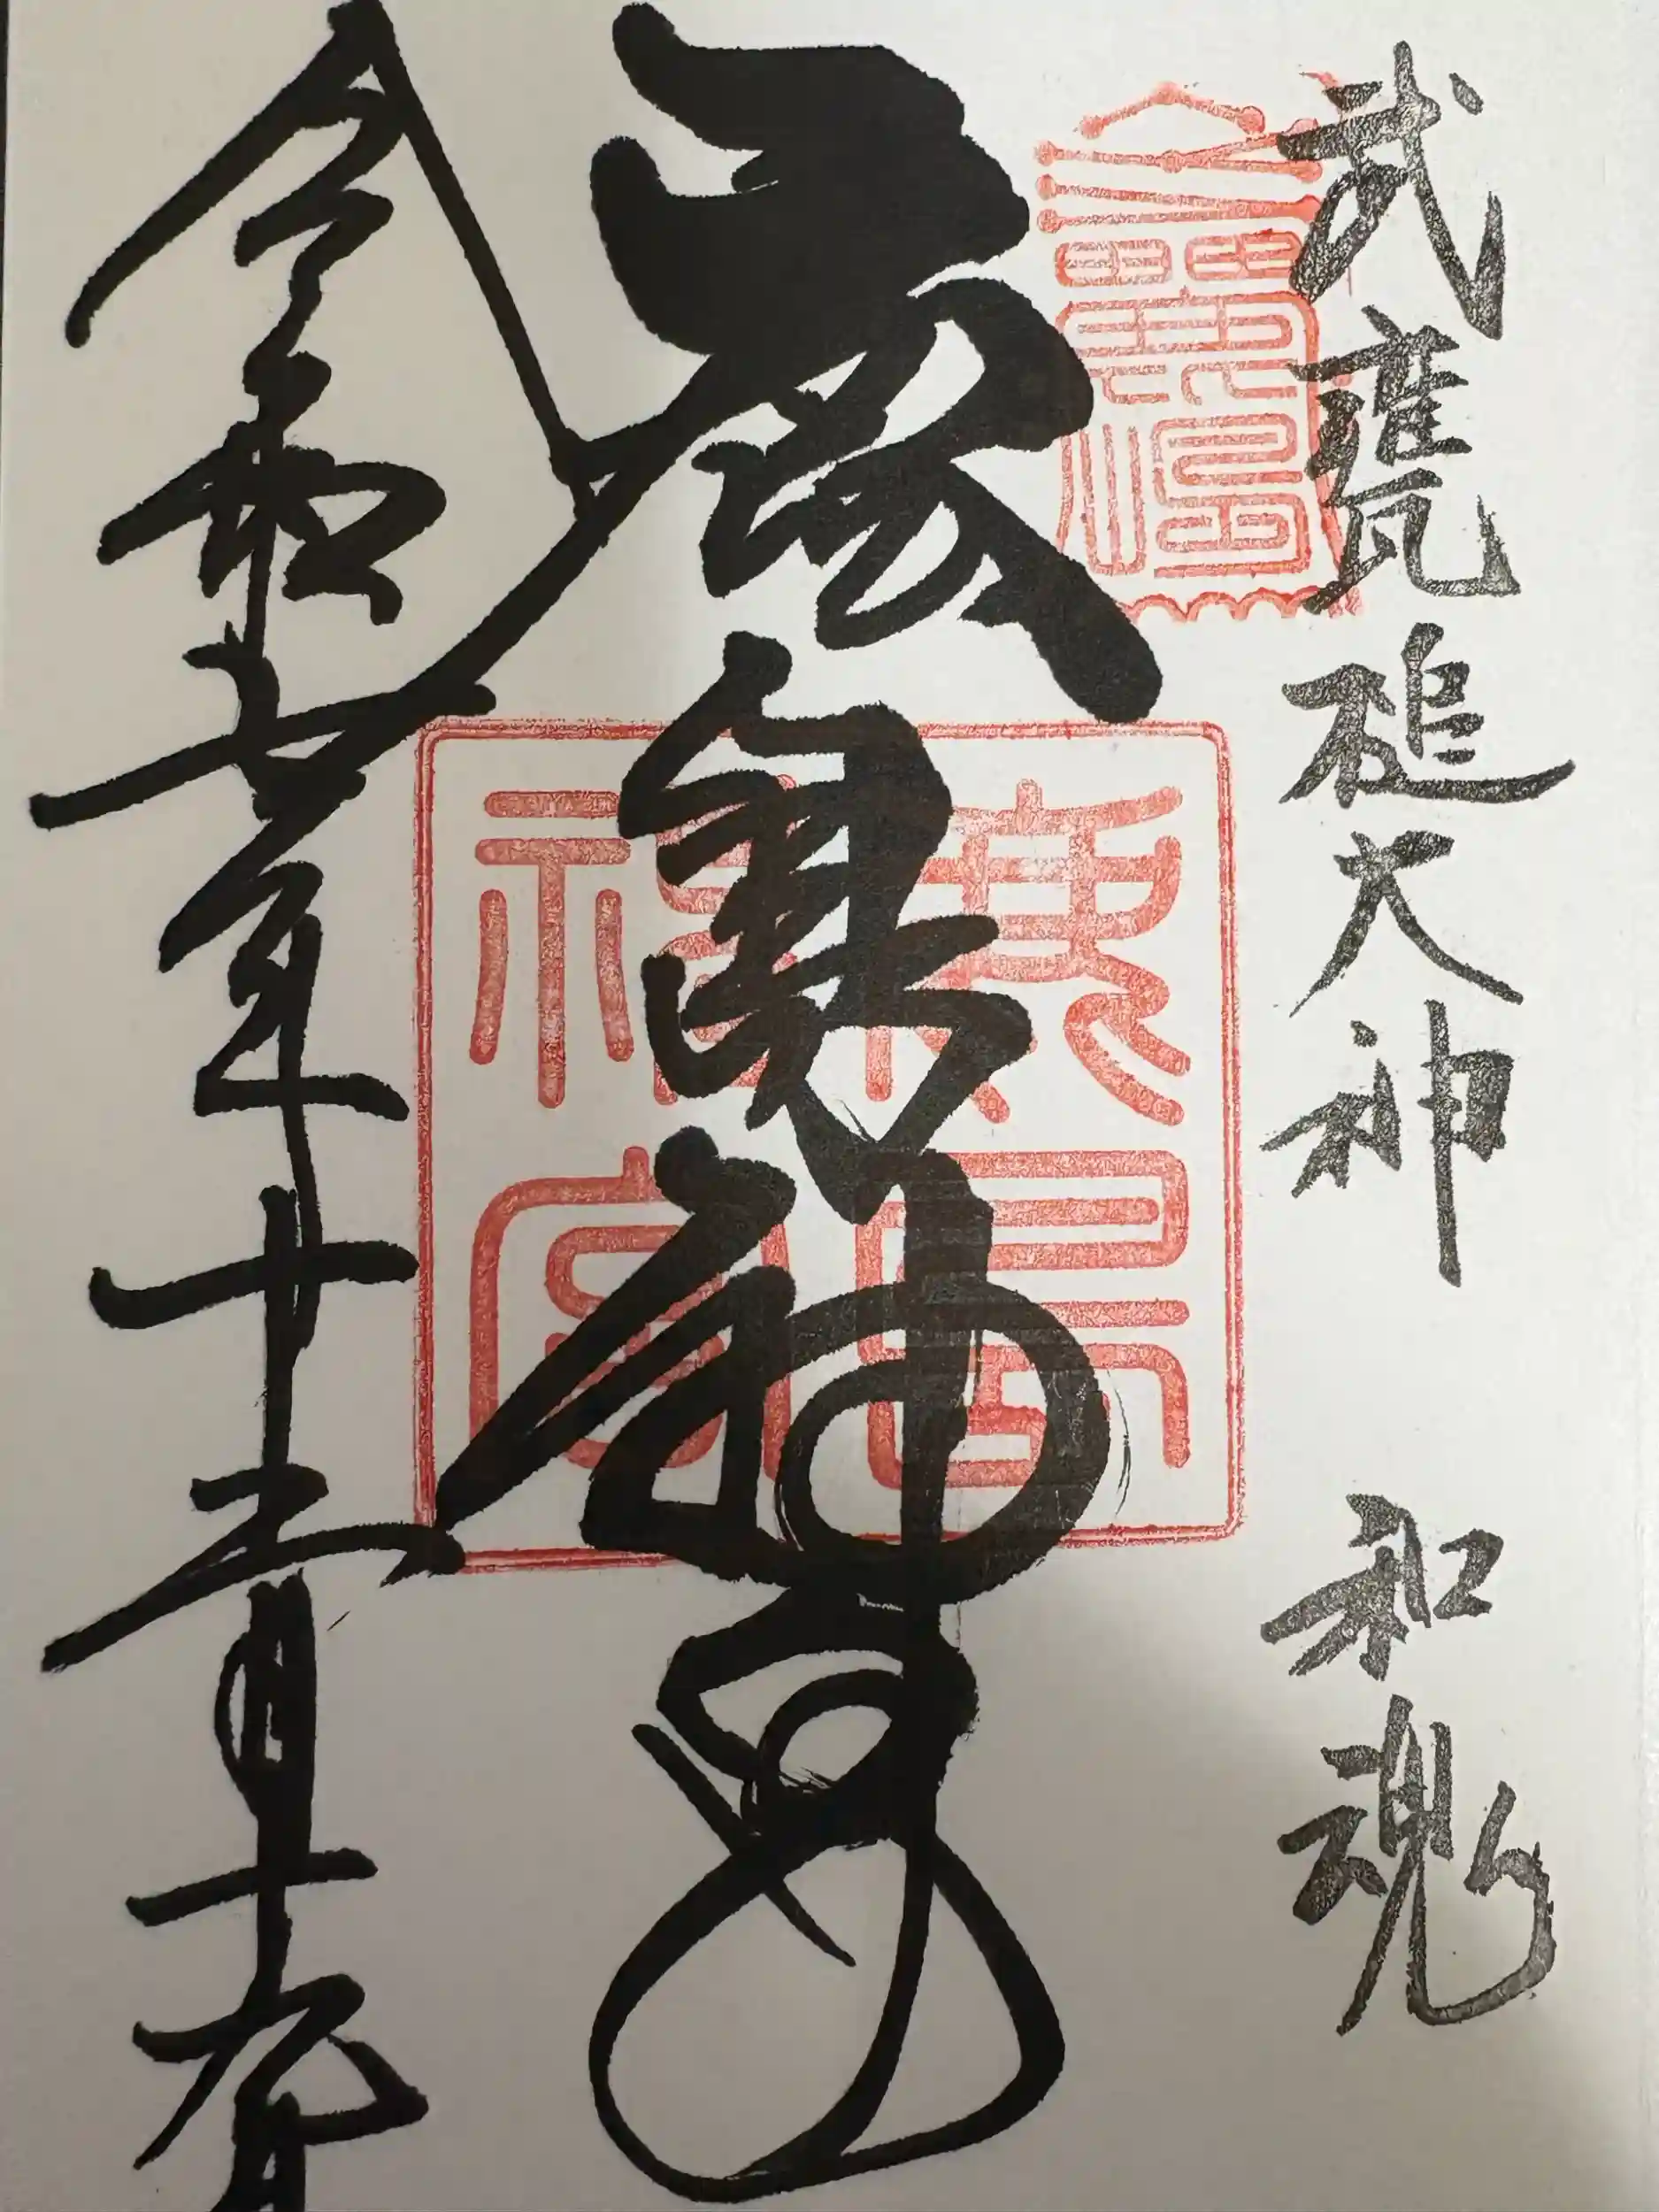 武甕槌大神　和魂
鹿島神宮
鹿島神宮
令和七年十二月十九日